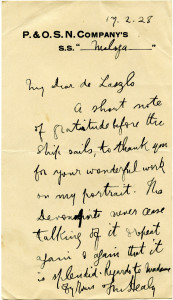 17.2.28
P. & O. S. N. COMPANY'S
S.S. "Maloja"
My dear de Laszlo
A short note
of gratitude before the
ship sails, to thank you
for your wonderful work
on my portrait. The
never cease
talking of it & repeat
again & again that it
is splendid. Regards to Madame
Yrs